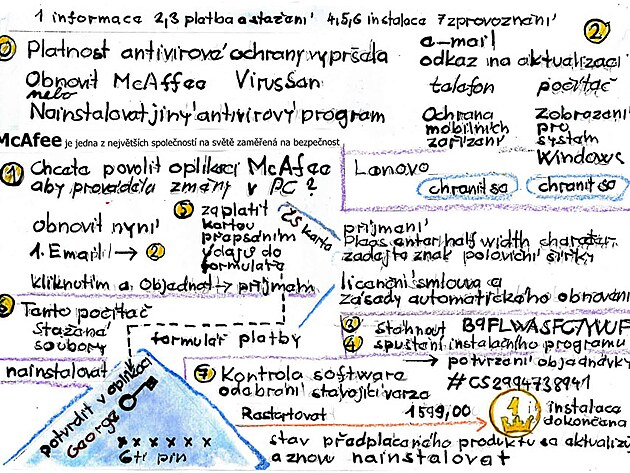 1 informace 2,3 platba a stažení 4,5,6 instalace 7 zprovoznění
0 Platnost antivirové ochrany vypršela
Obnovit McAffee VirusSan
nebo
Nainstalovat jiný antivirový program
2
e-mail
odkaz na aktualizaci
telefon počítač
Ochrana mobilních zařízení
Zobrazení pro systém Windows
McAfee je jedna z největších společností na světě zaměřená na bezpečnost
1 Chcete povolit aplikaci McAfee
aby prováděla změny v PC?
Lenovo
chránit se chránit se
obnovit nyní
1. Email → 2
kliknutím a Objednat → přijmam
5 zaplatit
kartou
propsáním
údajů do
formuláře
ZS karta
příjmaní
Pleas enter half width character
zadejte znak poloviční šířky
licenční smlouva a
zásady automatického obnovení
6 Tento počítač
Stažené
soubory
nainstalovat
formulář platby
3 stáhnout B9FLWASFC7YWUF
4 spuštění instalačního programu
→ potvrzení objednávky
#CS2994738941
7 Kontrola software
odebrání stávající verze
Restartovat 1599,00
1 instalace
dokončena
potvrdit v aplikaci
George
xxxxxx
6ti pin
stav předplaceného produktu se aktualizuj
a znow nainstalovat